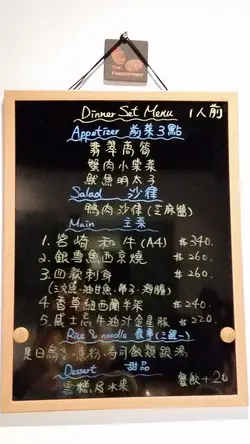 THE FINGERPRINT
Dinner Set Menu 1人前
Appetizer 前菜3點
翡翠苗筍
蟹肉小棠菜
魷魚明太子
Salad 沙律
鴨肉沙律(芝麻醬)
Main 主菜
1. 岩崎和牛(A4) $340.
2. 銀鱈魚西京燒 $260.
3. 四款刺身 $260.
(三文魚.油甘魚.帶子.海膽)
4. 香草紐西蘭羊架 $240.
5. 威士忌牛油汁金星豚 $220.
Rice & noodle 食事(三選一)
是日烏冬.烏粉.壽司飯類跟湯
Dessert 甜品
雪糕 & 水果 餐飲+20